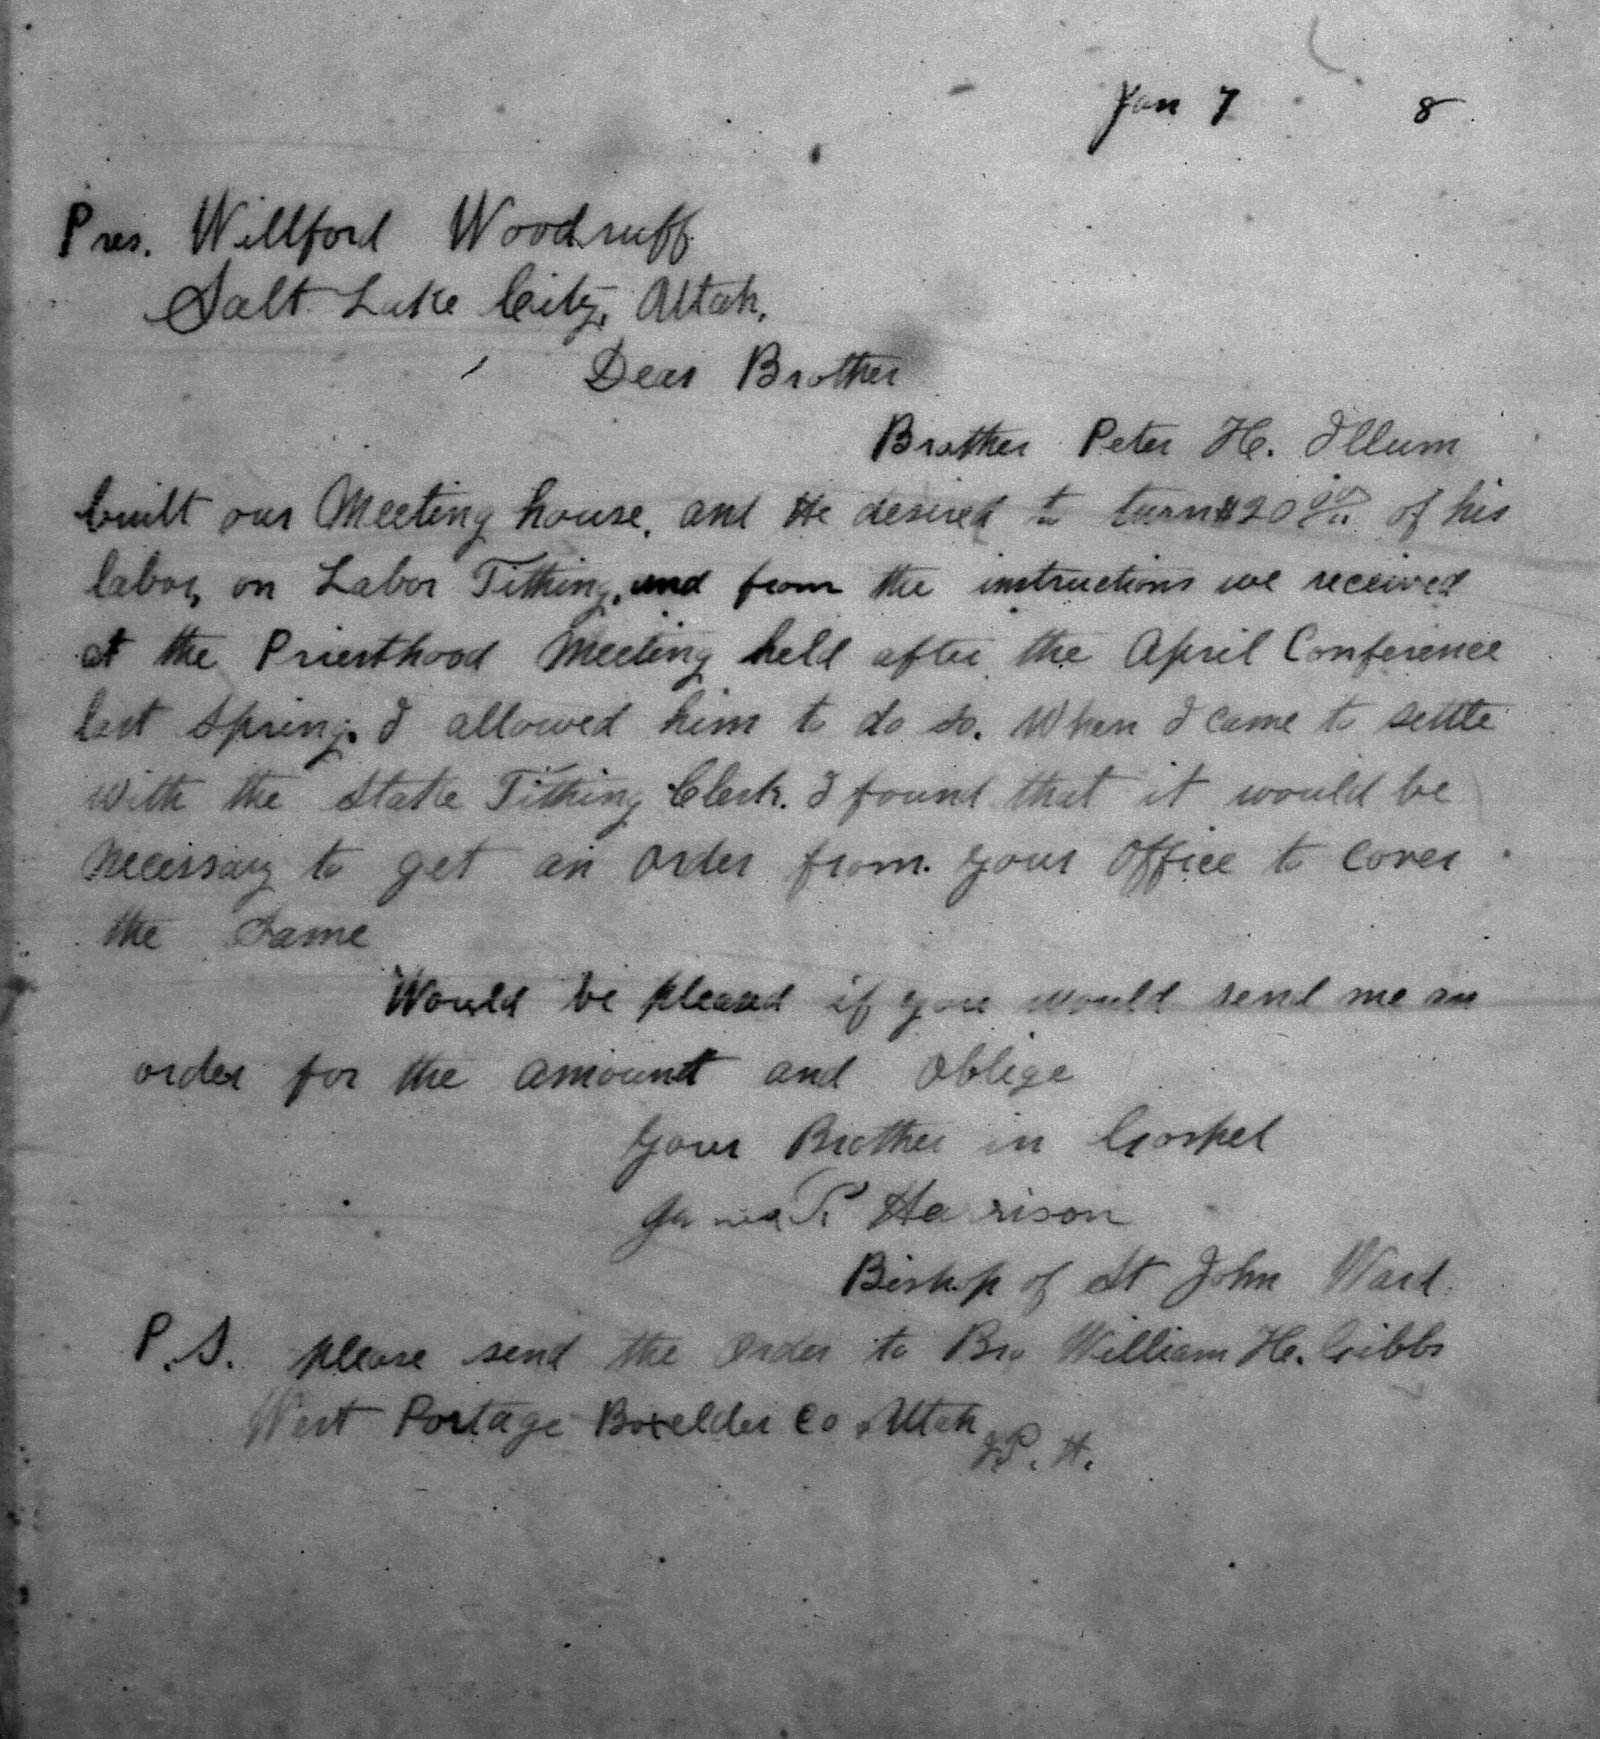 Jan 7 8
Pres. Willford Woodruff
Salt Lake City, Utah.
Dear Brother
Brother Peter H. Illum
built our Meeting house. and He desired to turn $20 00/00 of his
labor, on Labor Tithing, and from the instructions we received
at the Priesthood Meeting held after the April Conference
last Spring. I allowed him to do so. When I came to settle
with the Stake Tithing Clerk. I found that it would be
necessary to get an order from your office to cover
the Same
Would be pleased if you would send me an
order for the amount and oblige
Your Brother in Gospel
James P. Harrison
Bishop of St John Ward.
P.S. please send the order to Bro William H. Gibbs
West Portage Boxelder Co Utah
J.P.H.